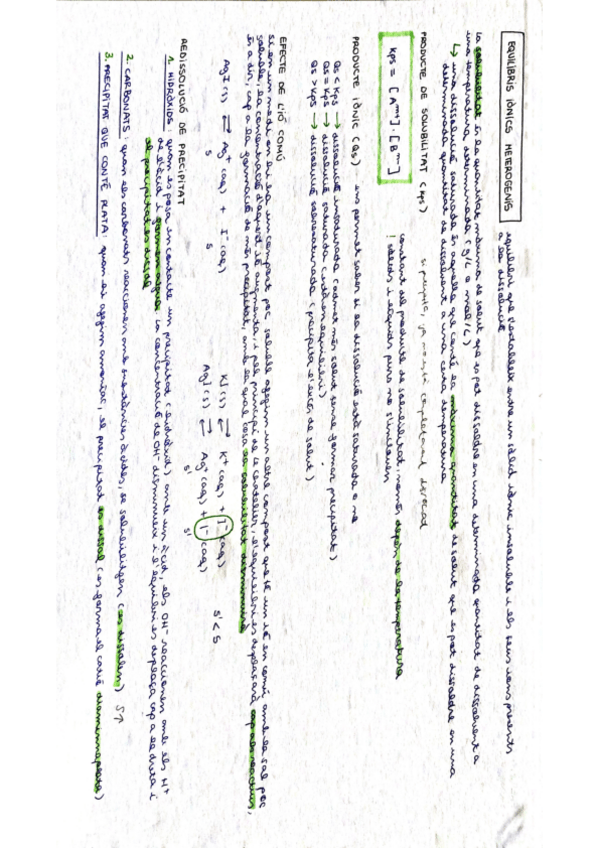 EQUILIBRIS IÒNICS HETEROGENIS equilibri que s'estableix entre un sòlid iònic insoluble i els seus ions presents
a la dissolució
la solubilitat és la quantitat màxima de solut que es pot dissoldre en una determinada quantitat de dissolvent a
una temperatura determinada (g/L o mol/L)
↳ una dissolució saturada és aquella que conté la màxima quantitat de solut que es pot dissoldre en una
determinada quantitat de dissolvent a una certa temperatura
PRODUCTE DE SOLUBILITAT (Kps) si precipita, ja no està completament dissociat
Kps = [A^m+] · [B^m-]
constant de producte de solubilitat, només depèn de la temperatura
! sòlids i líquids purs no s'inclouen
PRODUCTE IÒNIC (Qs) - ens permet saber si la dissolució està saturada o no
Qs < Kps → dissolució insaturada (admet més solut sense formar precipitat)
Qs = Kps → dissolució saturada (està en equilibri)
Qs > Kps → dissolució sobresaturada (precipita el excés de solut)
EFECTE DE L'IÓ COMÚ
si en un medi on hi ha un compost poc soluble afegim un altre compost que té un ió en comú amb la sal poc
soluble, la concentració d'aquest ió augmenta, i pel principi de Le Chatelier, l'equilibri es desplaçarà cap als reactius,
és a dir, cap a la formació de més precipitat, amb la qual cosa la solubilitat disminueix
AgI (s) ⇄ Ag+ (aq) + I- (aq)
s s
KI (s) ⇄ K+ (aq) + I- (aq)
AgI (s) ⇄ Ag+ (aq) + I- (aq)
s' s'
s' < s
REDISSOLUCIÓ DE PRECIPITAT
1. HIDRÒXIDS: quan es posa en contacte un precipitat (hidròxid) amb un àcid, els OH- reaccionen amb els H+
de l'àcid i formen aigua, la concentració de OH- disminueix i l'equilibri es desplaça cap a la dreta i
el precipitat es dissol
2. CARBONATS: quan els carbonats reaccionen amb substàncies àcides, se solubilitzen (es dissolen) S↑
3. PRECIPITAT QUE CONTÉ PLATA: quan hi afegim amoníac, el precipitat es dissol (es forma el catió diamminaplata)